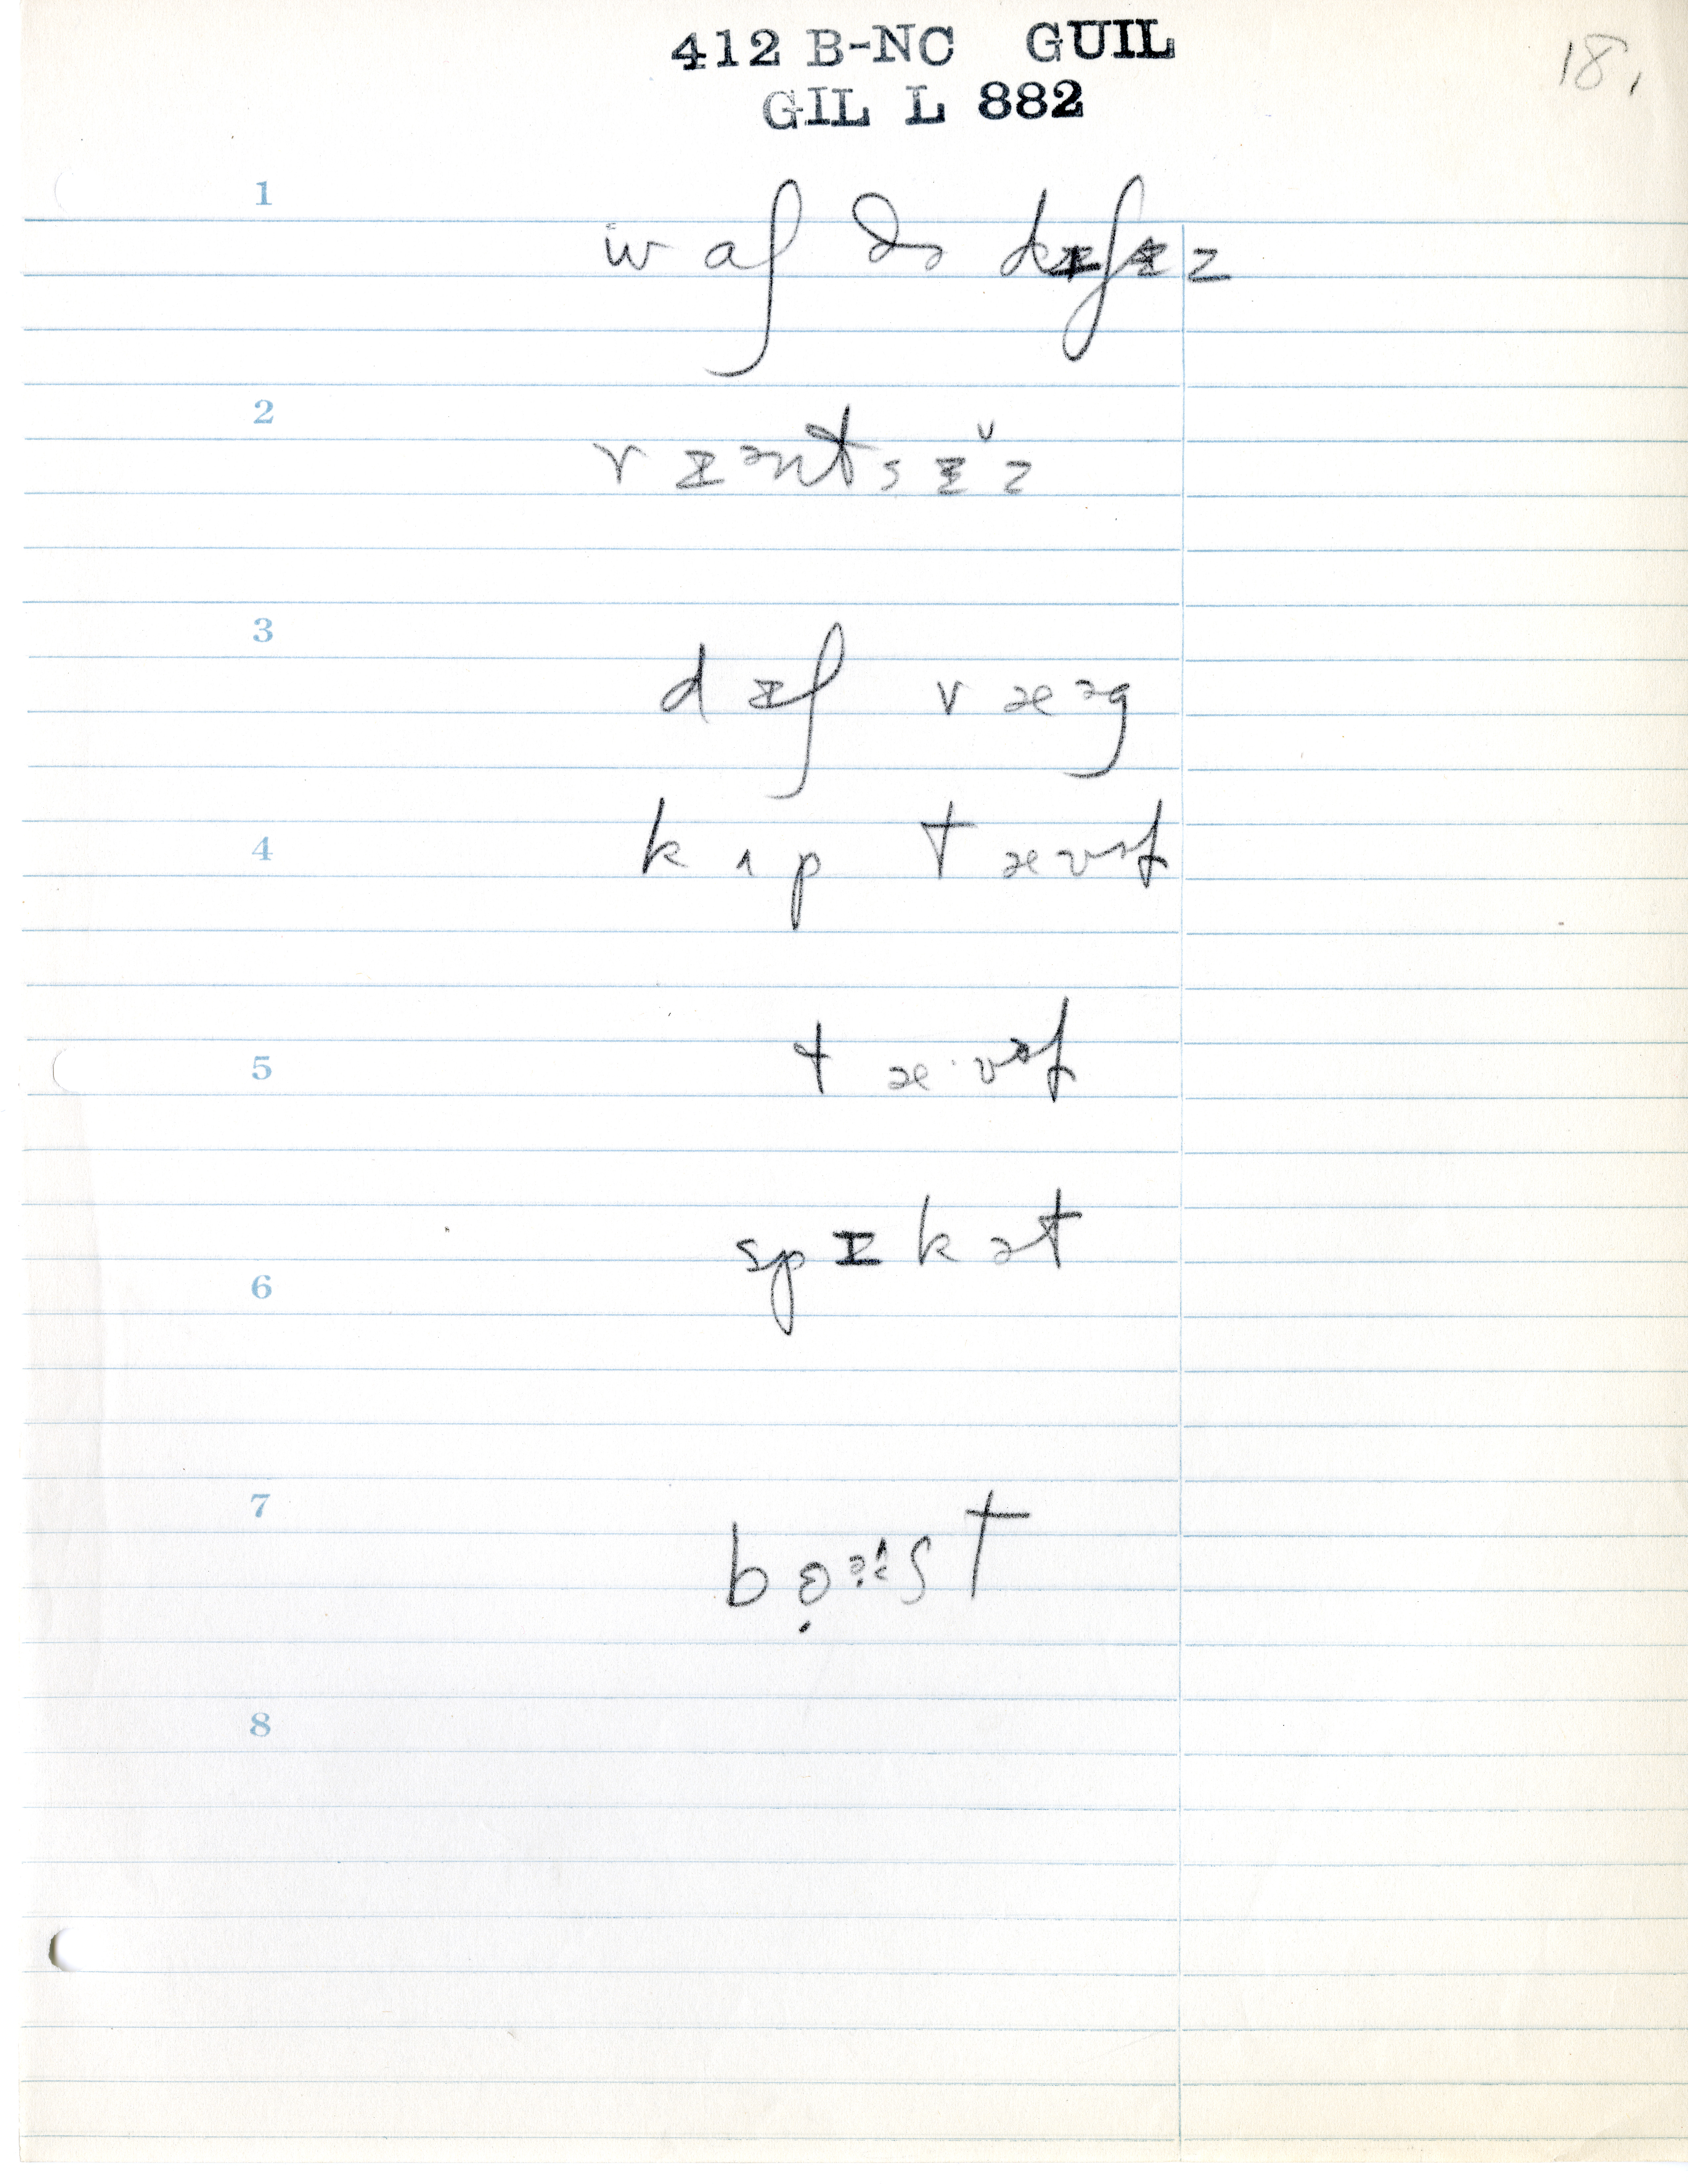 412 B-NC GUIL
GIL L 882
18.
1
w aʃ ðə dɪʃɪz
2
r ɪ ᵊntsɪ̌z
3
d ɪʃ r æᵊg
4
k ʌp t ævəl
5
t æ·vəl
6
sp ɪ k ət
7
8